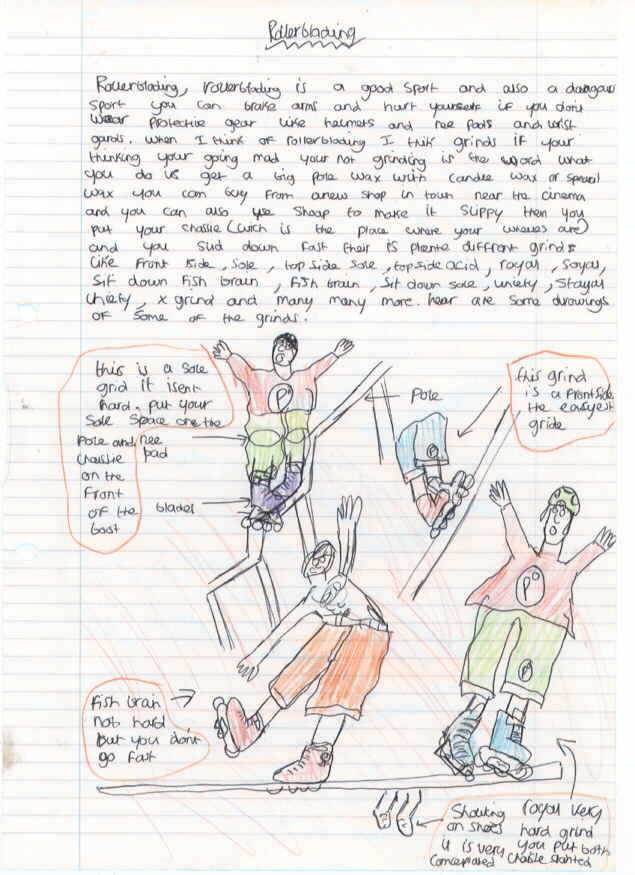 Rollerblading
Rollerblading, rollerblading is a good sport and also a
sport you can brake arms and hurt yourself if you don't
wear protective gear like helmets and nee pads and wrist
gards. when I think of rollerblading I think grinds if your
thinking your going mad your not grinding is the word what
you do is get a big pole wax with candle wax or speacil
wax you can buy from a new shop in town near the cinema
and you can also use shoap to make it slippy then you
put your chasiie (wich is the place where your wheales are)
and you slid down fast their is plente diffront grinds
like front side, sole, top side sole, topside acid, royal, soyal,
sit down fish brain, fish brain, sit down sole, uniety, Stayal
uniety, x grind and many many more. hear are some drawings
of some of the grinds.
this is a sole
grid it isent
hard. put your
sole space on the
pole and
chasiie
on the
front
of the
boot
nee
pad
blades
pole
this grind
is a frontside
the easyest
gride
P
P
P
Fish brain
not hard
but you don't
go fast
Showing
on shoes
it is very
royal very
hard grind
you put both
chasiie slanted